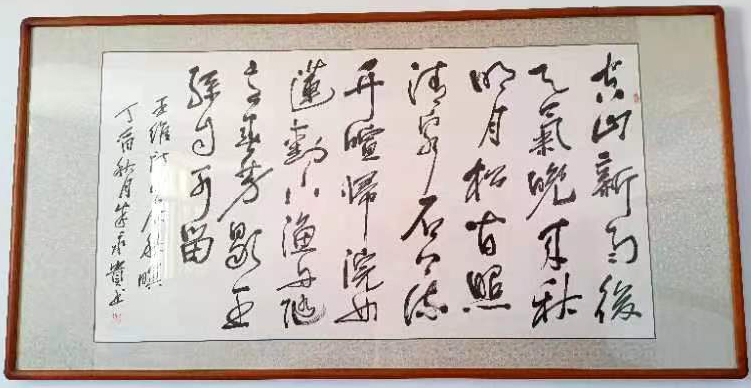 空山新雨後
天氣晚来秋
明月松間照
清泉石上流
竹喧歸浣女
蓮動下漁舟隨
意春芳歇王
孫自可留
王維詩山居秋暝
丁酉秋月書